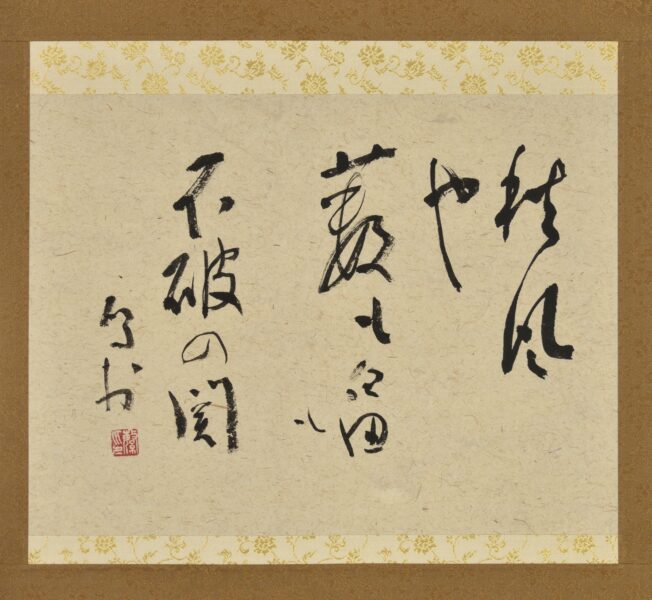 秋風
や
藪も畠
も
不破の関
書